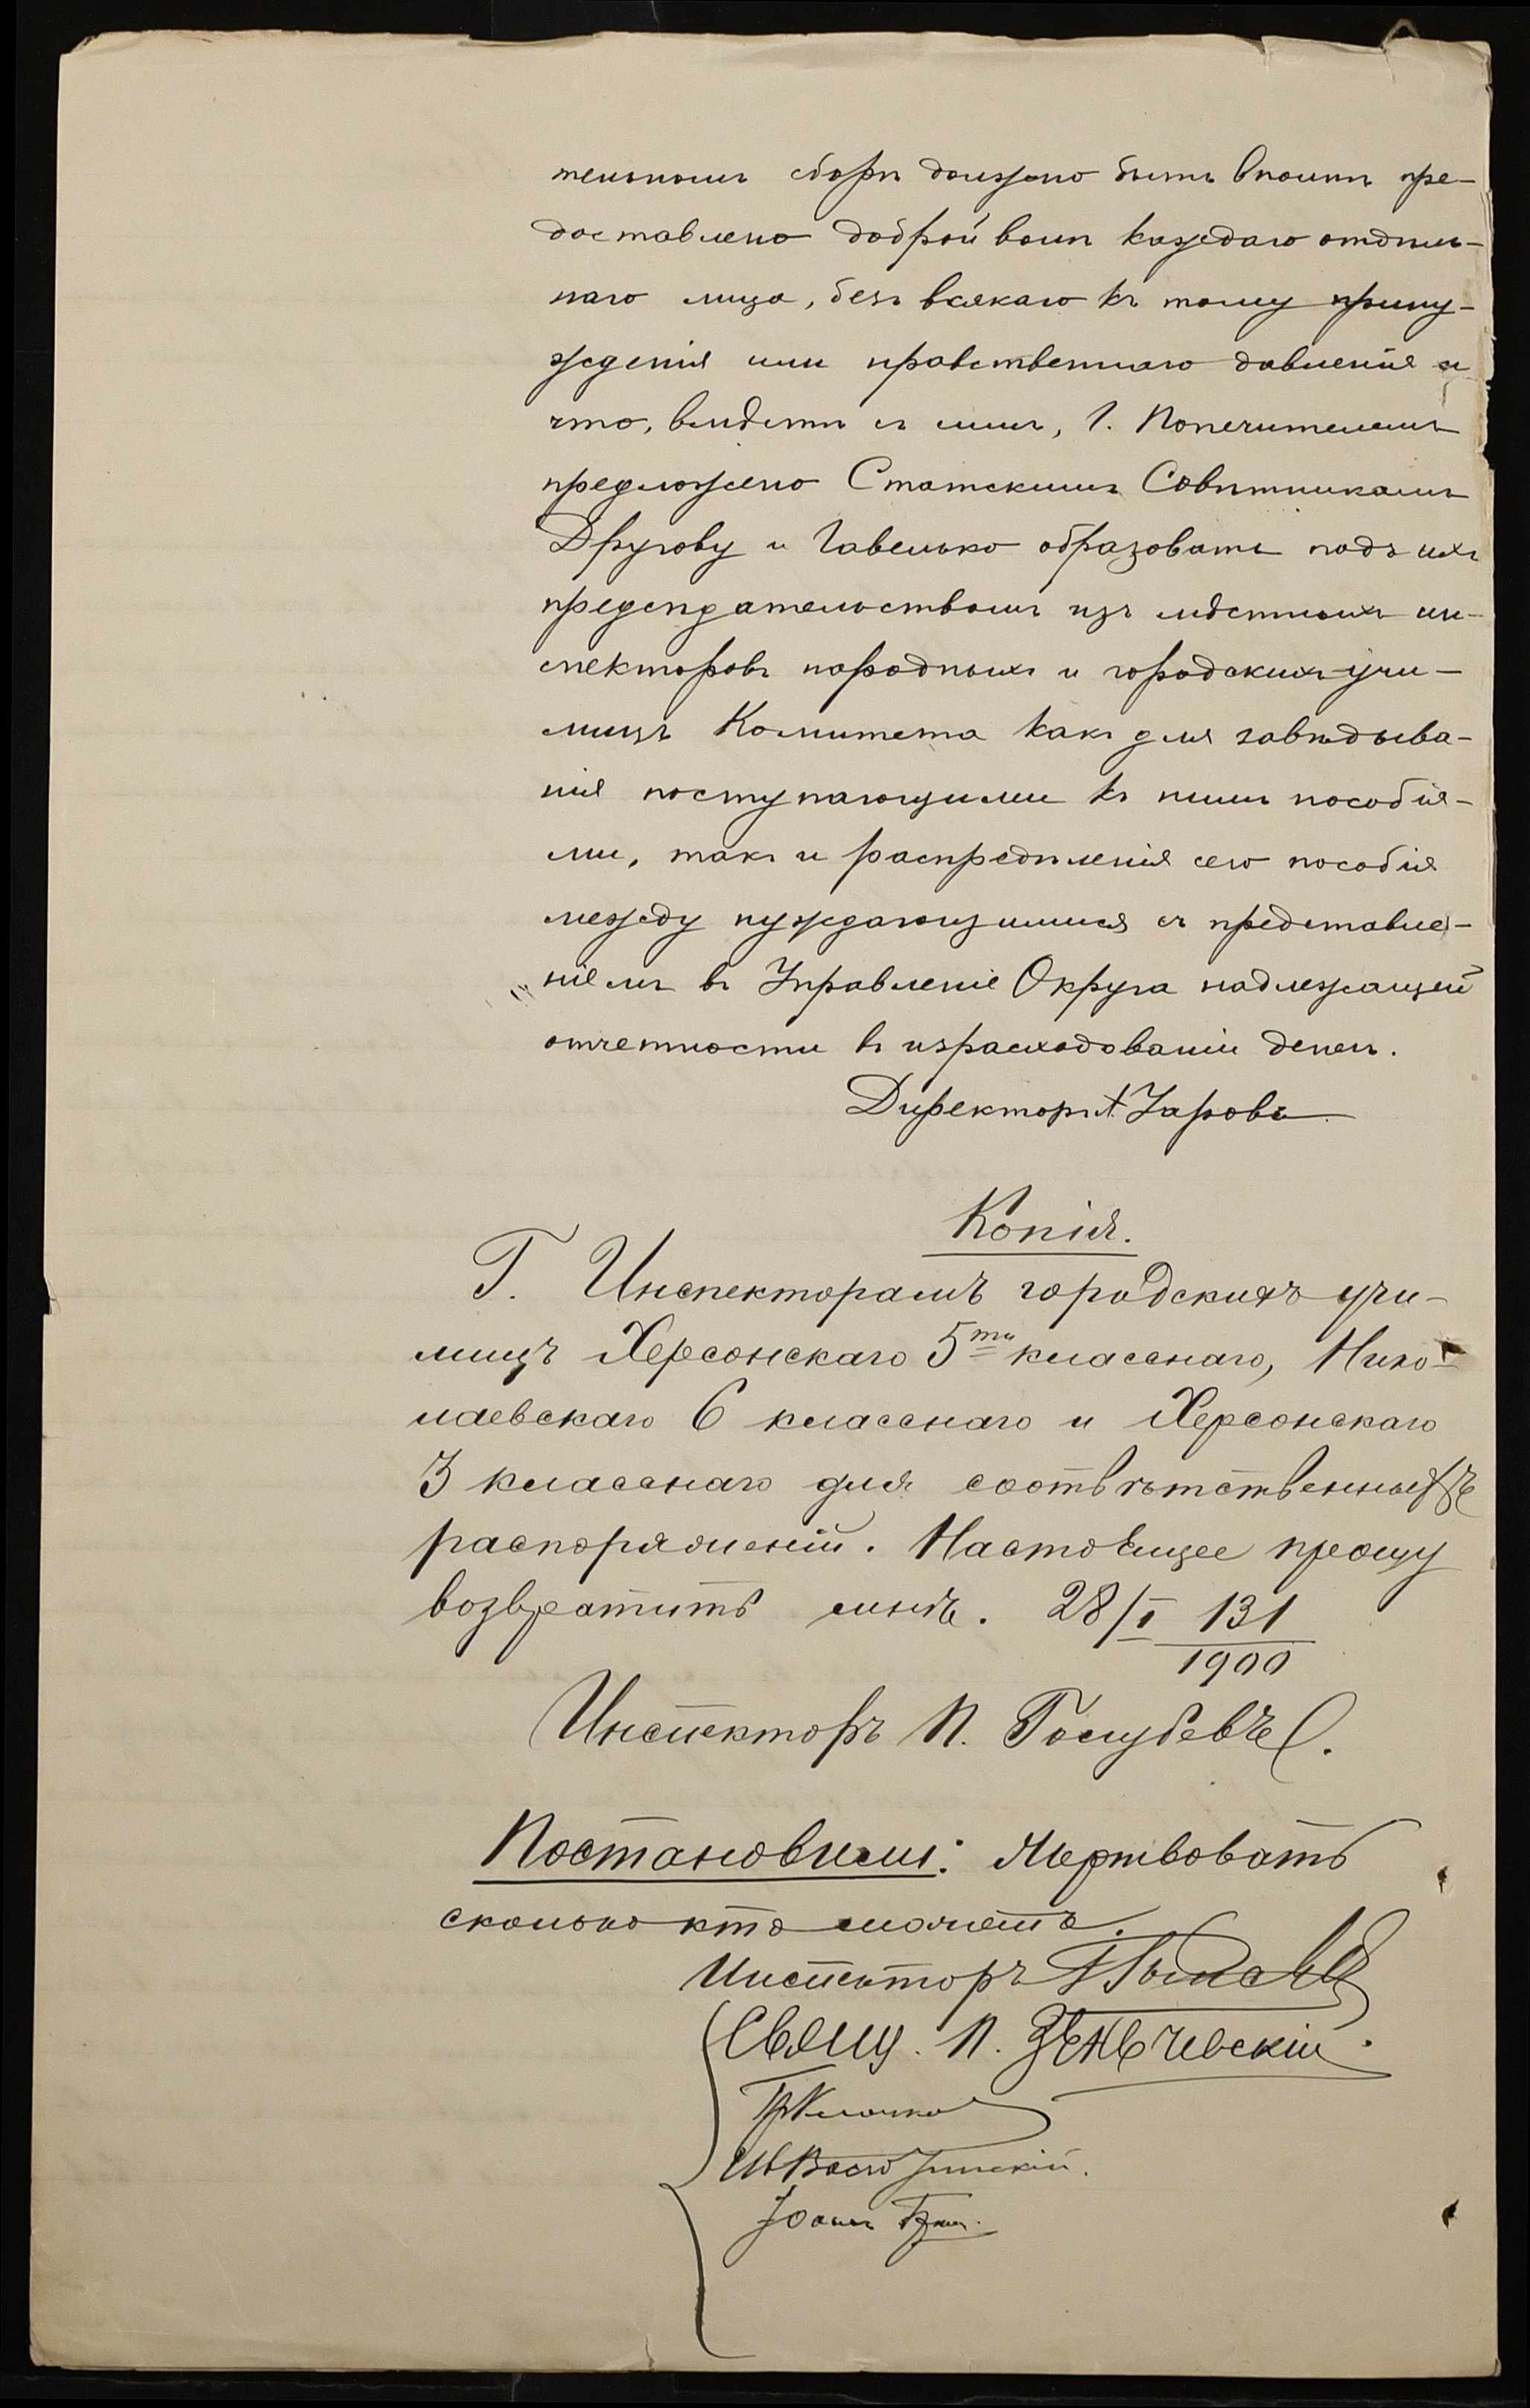 тельномъ сборѣ должно быть вполнѣ пре-
доставлено доброй волѣ каждаго отдѣль-
наго лица, безъ всякаго къ тому прину-
жденія или нравственнаго давленія и
что, вмѣстѣ съ симъ, Г. Попечителемъ
предложено Статскимъ Совѣтникамъ
Другову и Гавелько образовать подъ ихъ
предсѣдательствомъ изъ мѣстныхъ ин-
спекторовъ народныхъ и городскихъ учи-
лищъ Комитета какъ для завѣдыва-
нія поступающими къ нимъ пособія-
ми, такъ и распредѣленія сего пособія
между нуждающимися съ представле-
ніемъ въ Управленіе Округа надлежащей
отчетности въ израсходованіи денегъ.
Директоръ А.
Копія.
Г. Инспекторамъ городскихъ учи-
лищъ Херсонскаго 5ти класснаго, Нико-
лаевскаго 6 класснаго и Херсонскаго
3 класснаго для соотвѣтственныхъ
распоряженій. Настоящее прошу
возвратить мнѣ. 28/I 131
1900
Инспекторъ П. Голубевъ.
Постановили: Жертвовать
сколько кто можетъ.
Инспекторъ
Свящ. П. Зеньчевскій.
Іоаннъ